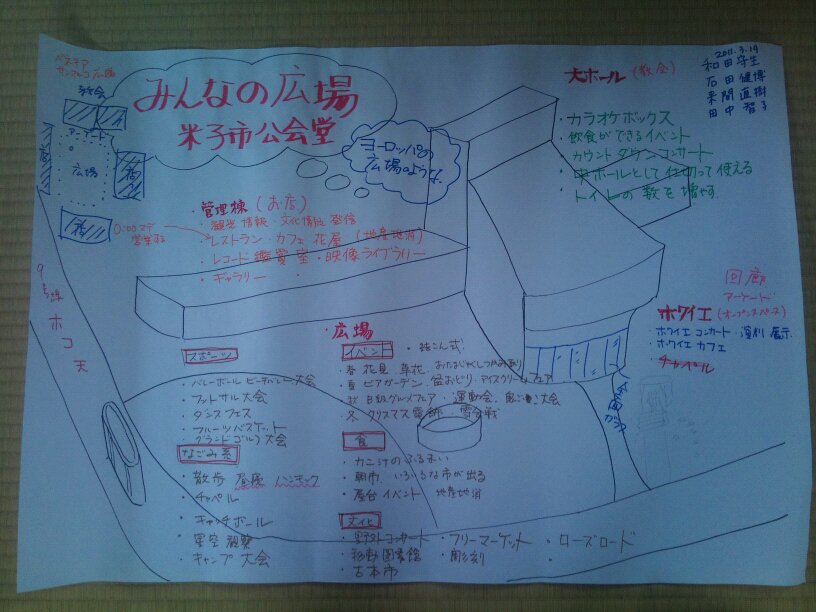 みんなの広場
米子市公会堂
ヨーロッパの
広場のような
教会
アーケード
広場
商
商
商
0:00マデ
営業する
9号線 ホコ天
・管理棟 (お店)
・観光情報・文化情報発信
・レストラン・カフェ 花屋 (地産地消)
・レコード鑑賞室・映像ライブラリー
・ギャラリー ・
大ホール (教会)
・カラオケボックス
・飲食ができるイベント
・カウントダウンコンサート
・中ホールとして仕切って使える
・トイレの数を増やす
2011.3.19
和田守生
石田健博
来間直樹
田中智子
回廊
アーケード
ホワイエ (オープンスペース)
・ホワイエコンサート・演劇 展示
・ホワイエカフェ
・チャペル
・広場
スポーツ
・バレーボール ビーチバレー大会
・フットサル大会
・ダンスフェス
・フルーツバスケット
・グランドゴルフ大会
なごみ系
・散歩 昼寝 ハンモック
・チャペル
・キャッチボール
・星空観察
・キャンプ大会
イベント ・結こん式
・春 花見 草花
・夏 ビアガーデン・盆おどり・アイスクリームフェア
・秋 B級グルメフェア・運動会
・冬 クリスマス電飾 雪合戦
食
・カニ汁のふるまい
・朝市、いろいろな市が出る
・屋台イベント 地産地消
文化
・野外コンサート ・フリーマーケット ・ローズロード
・移動図書館 ・彫刻 ・
・古本市